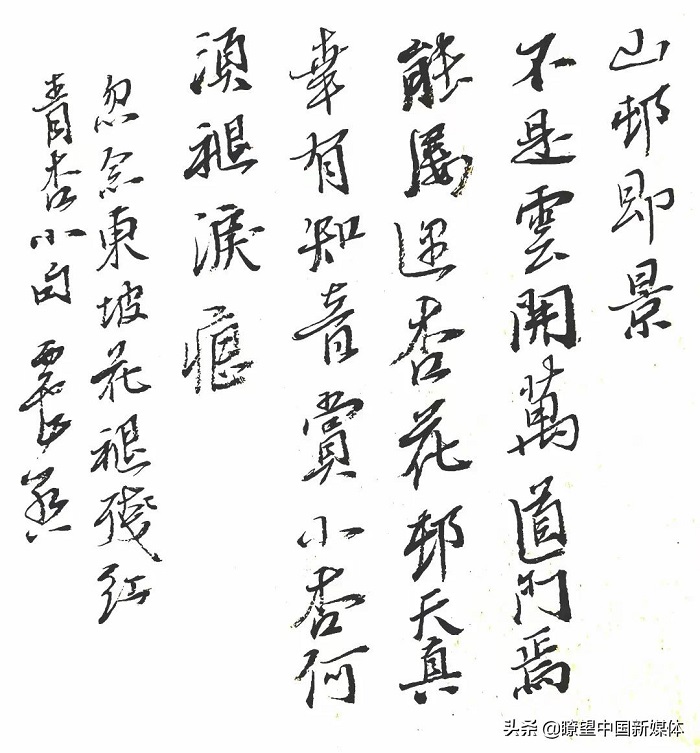 山邨即景
不是雲開萬道門焉
能屢杏花邨天真
幸有知音賞小杏何
須褪淚痕
忽念東坡花褪殘紅
青杏小句
头条 @瞭望中国新媒体